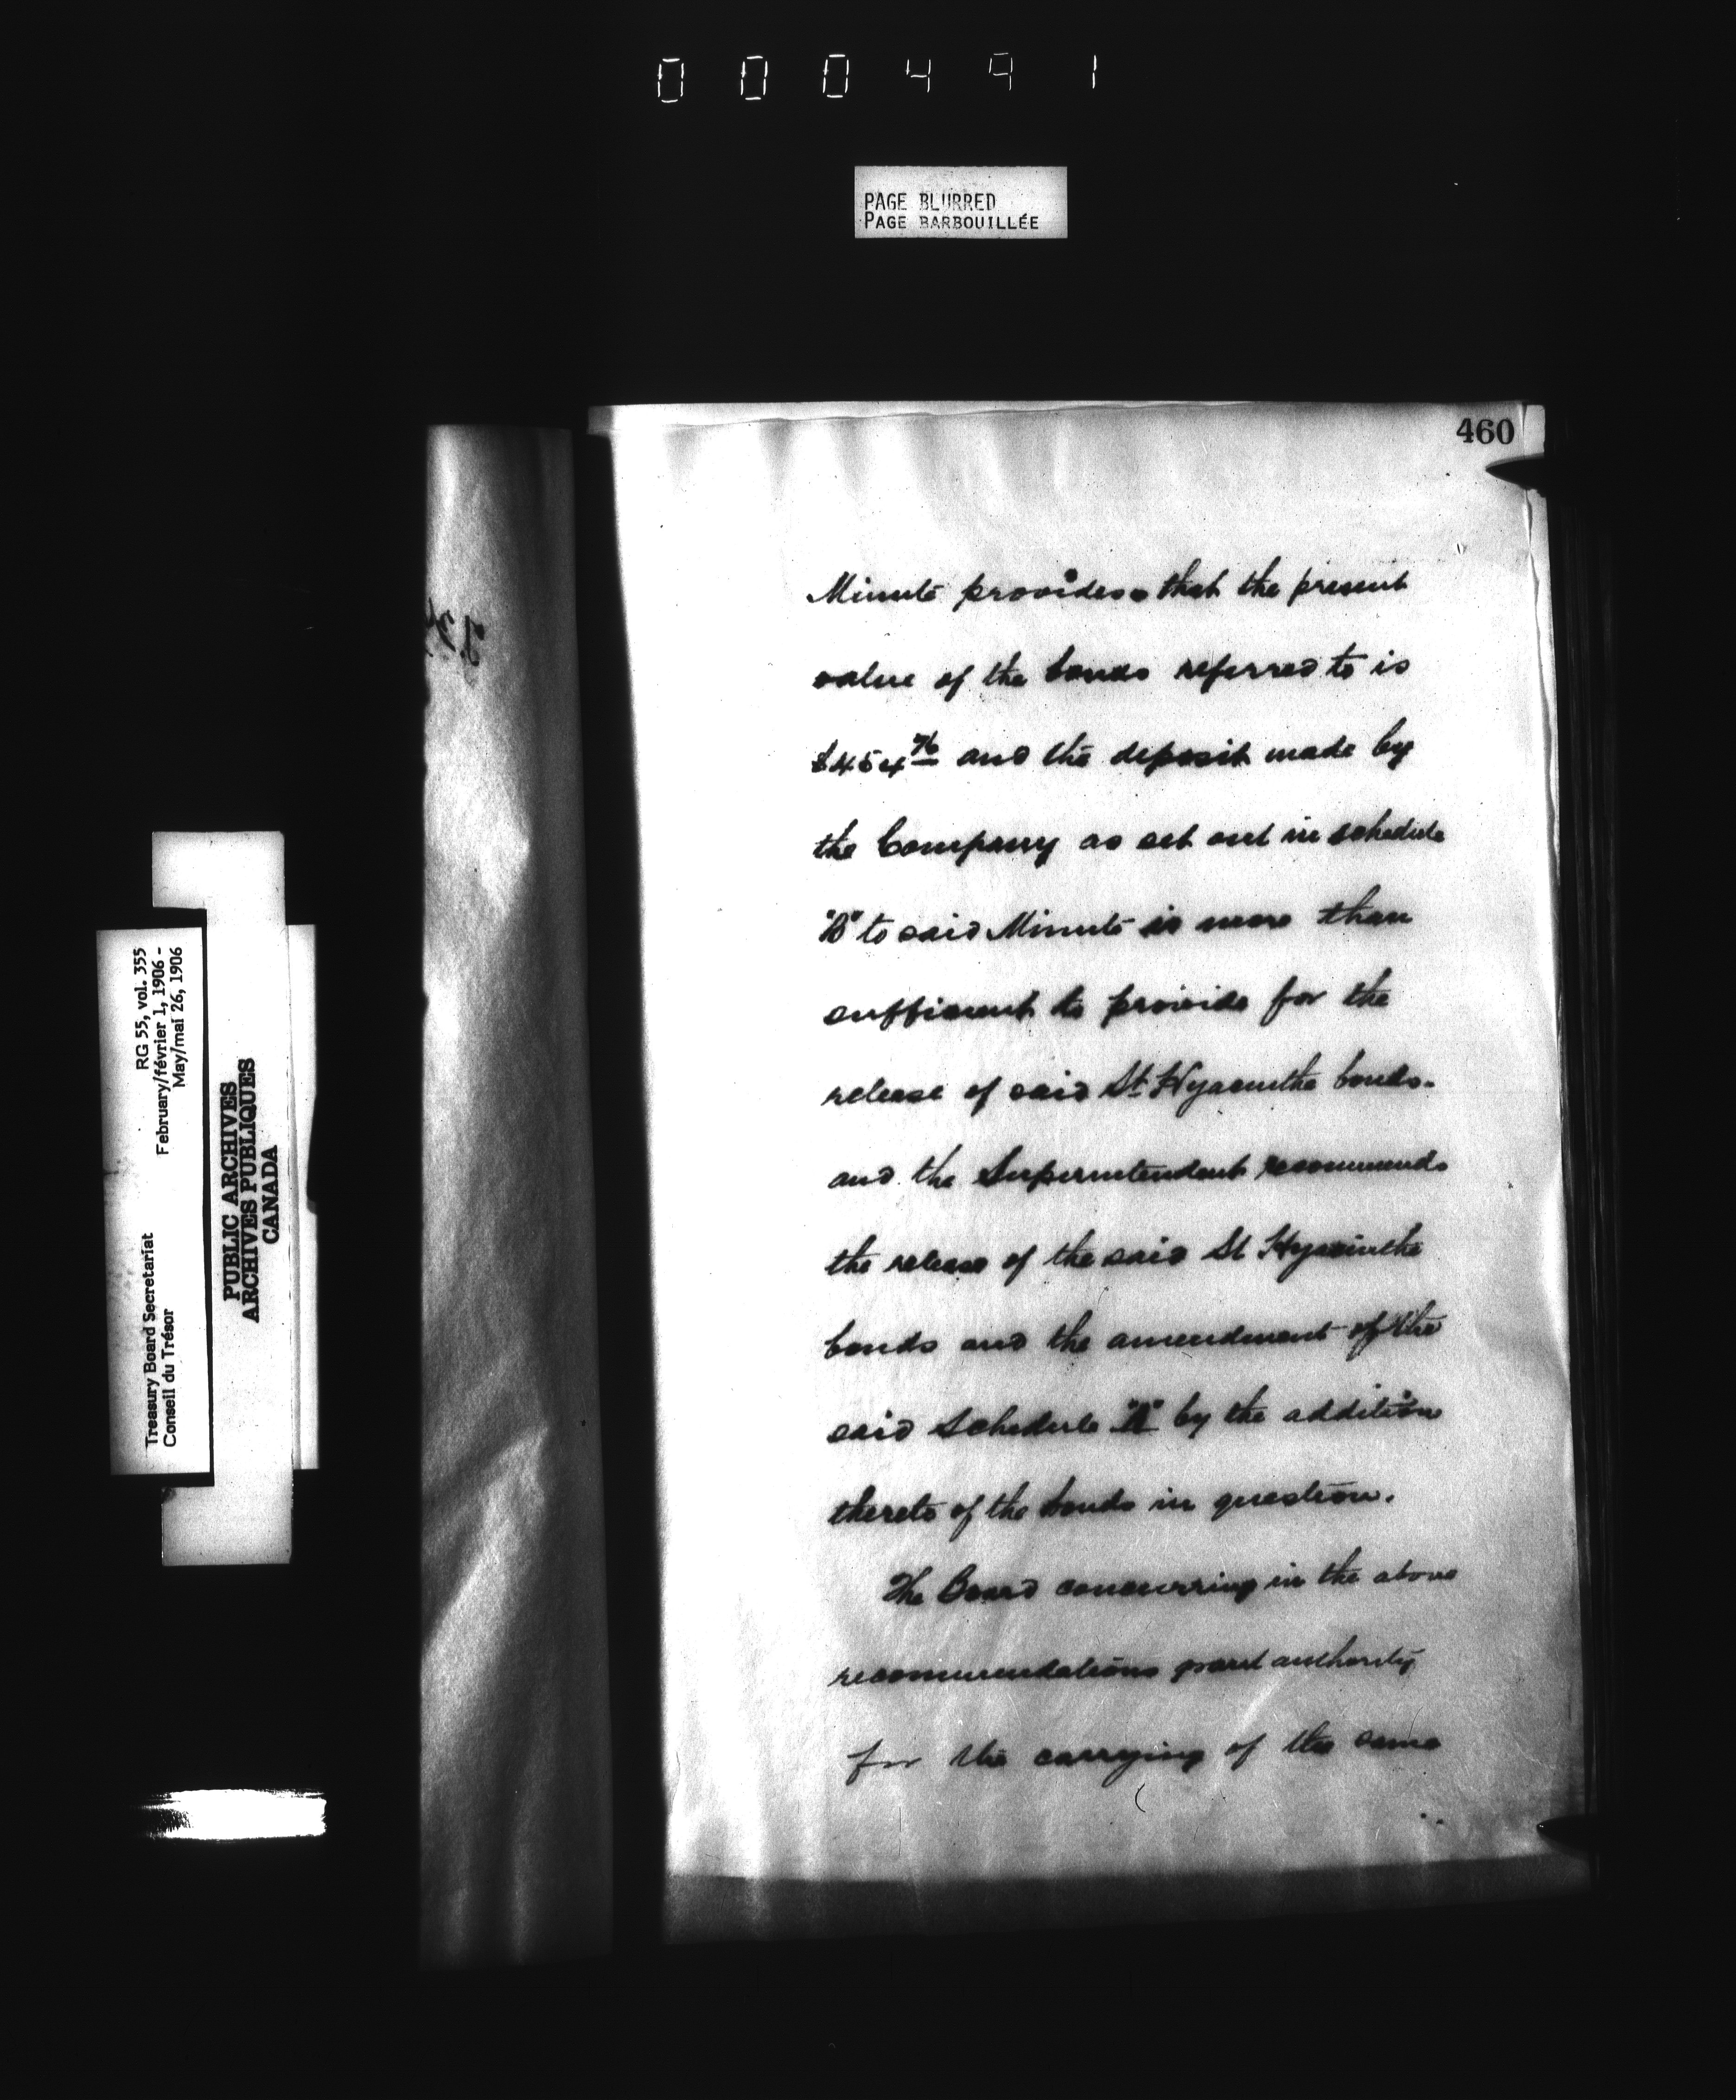 000491
PAGE BLURRED
PAGE BARBOUILLÉE
460
Minute provides that the present
value of the bonds referred to is
$454 76 and the deposit made by
the Company as set out in schedule
"B" to said Minute is more than
sufficient to provide for the
release of said St Hyacinthe bonds.
and the Superintendent recommends
the release of the said St Hyacinthe
bonds and the amendment of the
said Schedule "A" by the addition
thereto of the bonds in question.
The Board concurring in the above
recommendations grant authority
for the carrying of the same
Treasury Board Secretariat RG 55, vol. 355
Conseil du Trésor February/février 1, 1906 -
May/mai 26, 1906
PUBLIC ARCHIVES
ARCHIVES PUBLIQUES
CANADA